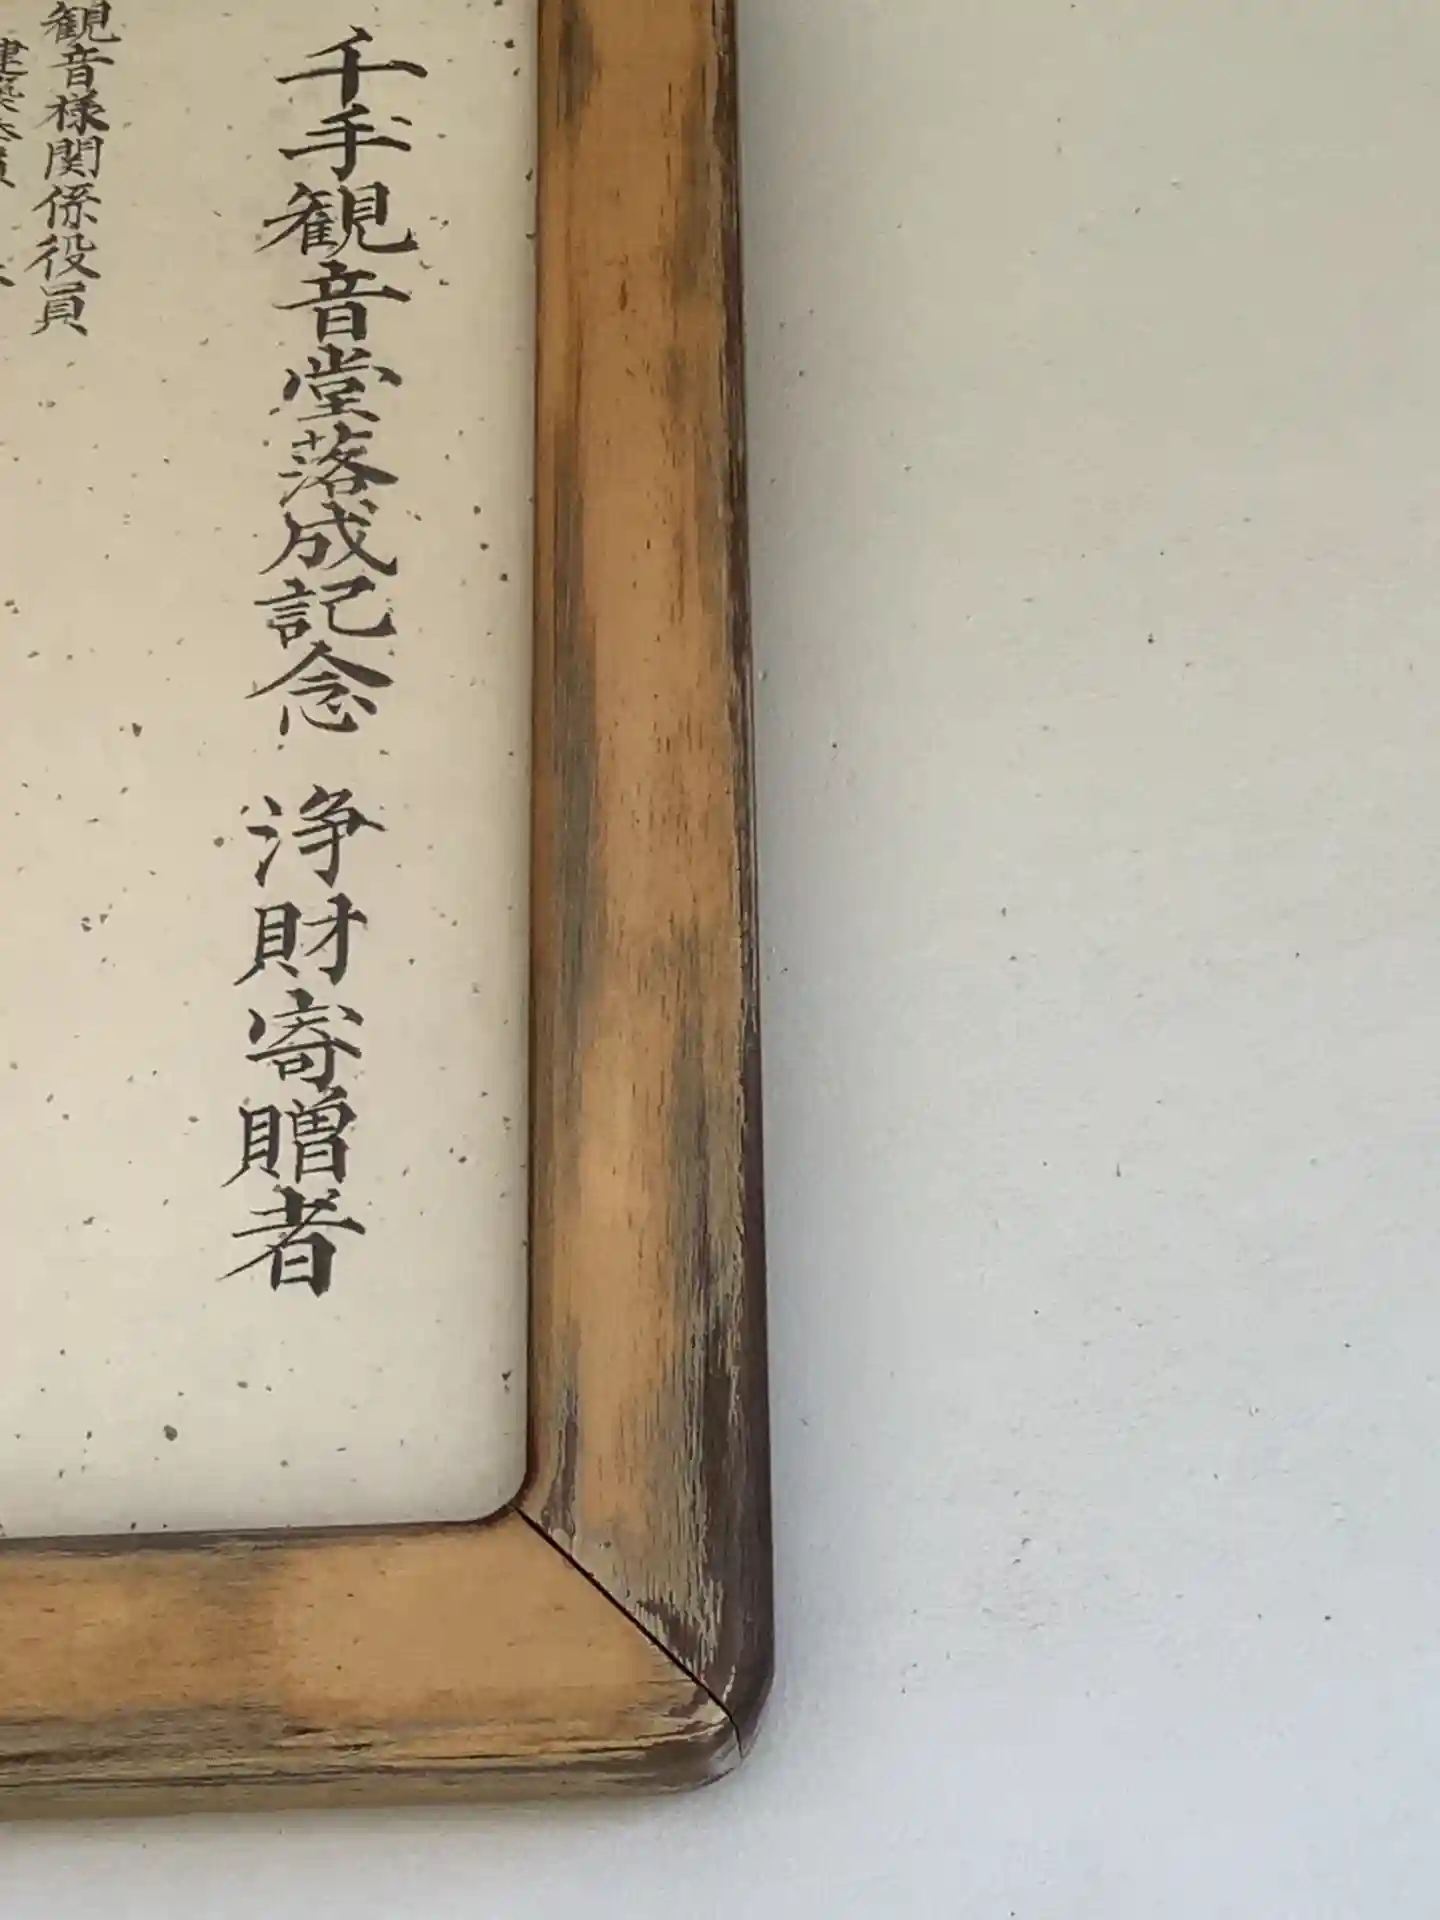 千手観音堂落成記念 浄財寄贈者
観音様関係役員
建築委員